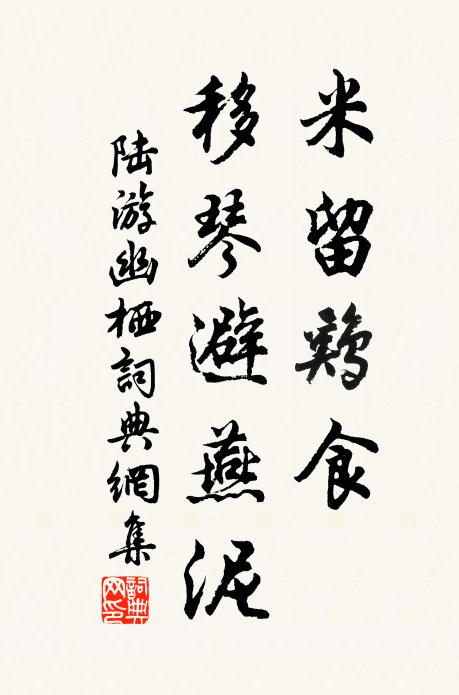 米留鷄食
移琴避燕泥
陆游幽栖詞典網集
詞典网印